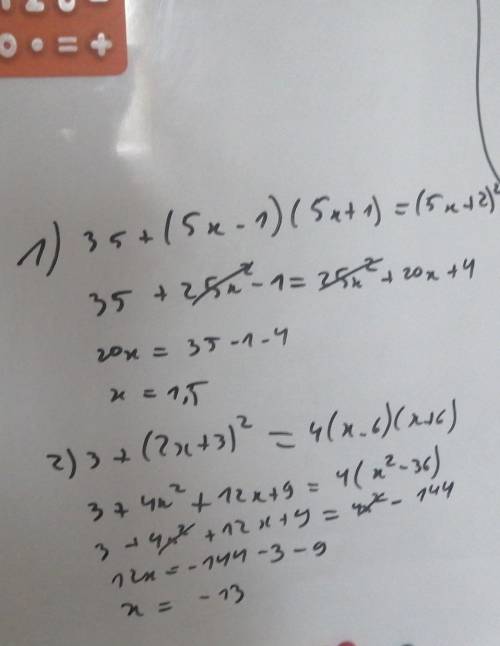 0 • = +
1) 35 + (5x - 1)(5x + 1) = (5x + 2)²
35 + 25x² - 1 = 25x² + 20x + 4
20x = 35 - 1 - 4
x = 1,5
2) 3 + (2x + 3)² = 4(x - 6)(x + 6)
3 + 4x² + 12x + 9 = 4(x² - 36)
3 + 4x² + 12x + 9 = 4x² - 144
12x = -144 - 3 - 9
x = -13